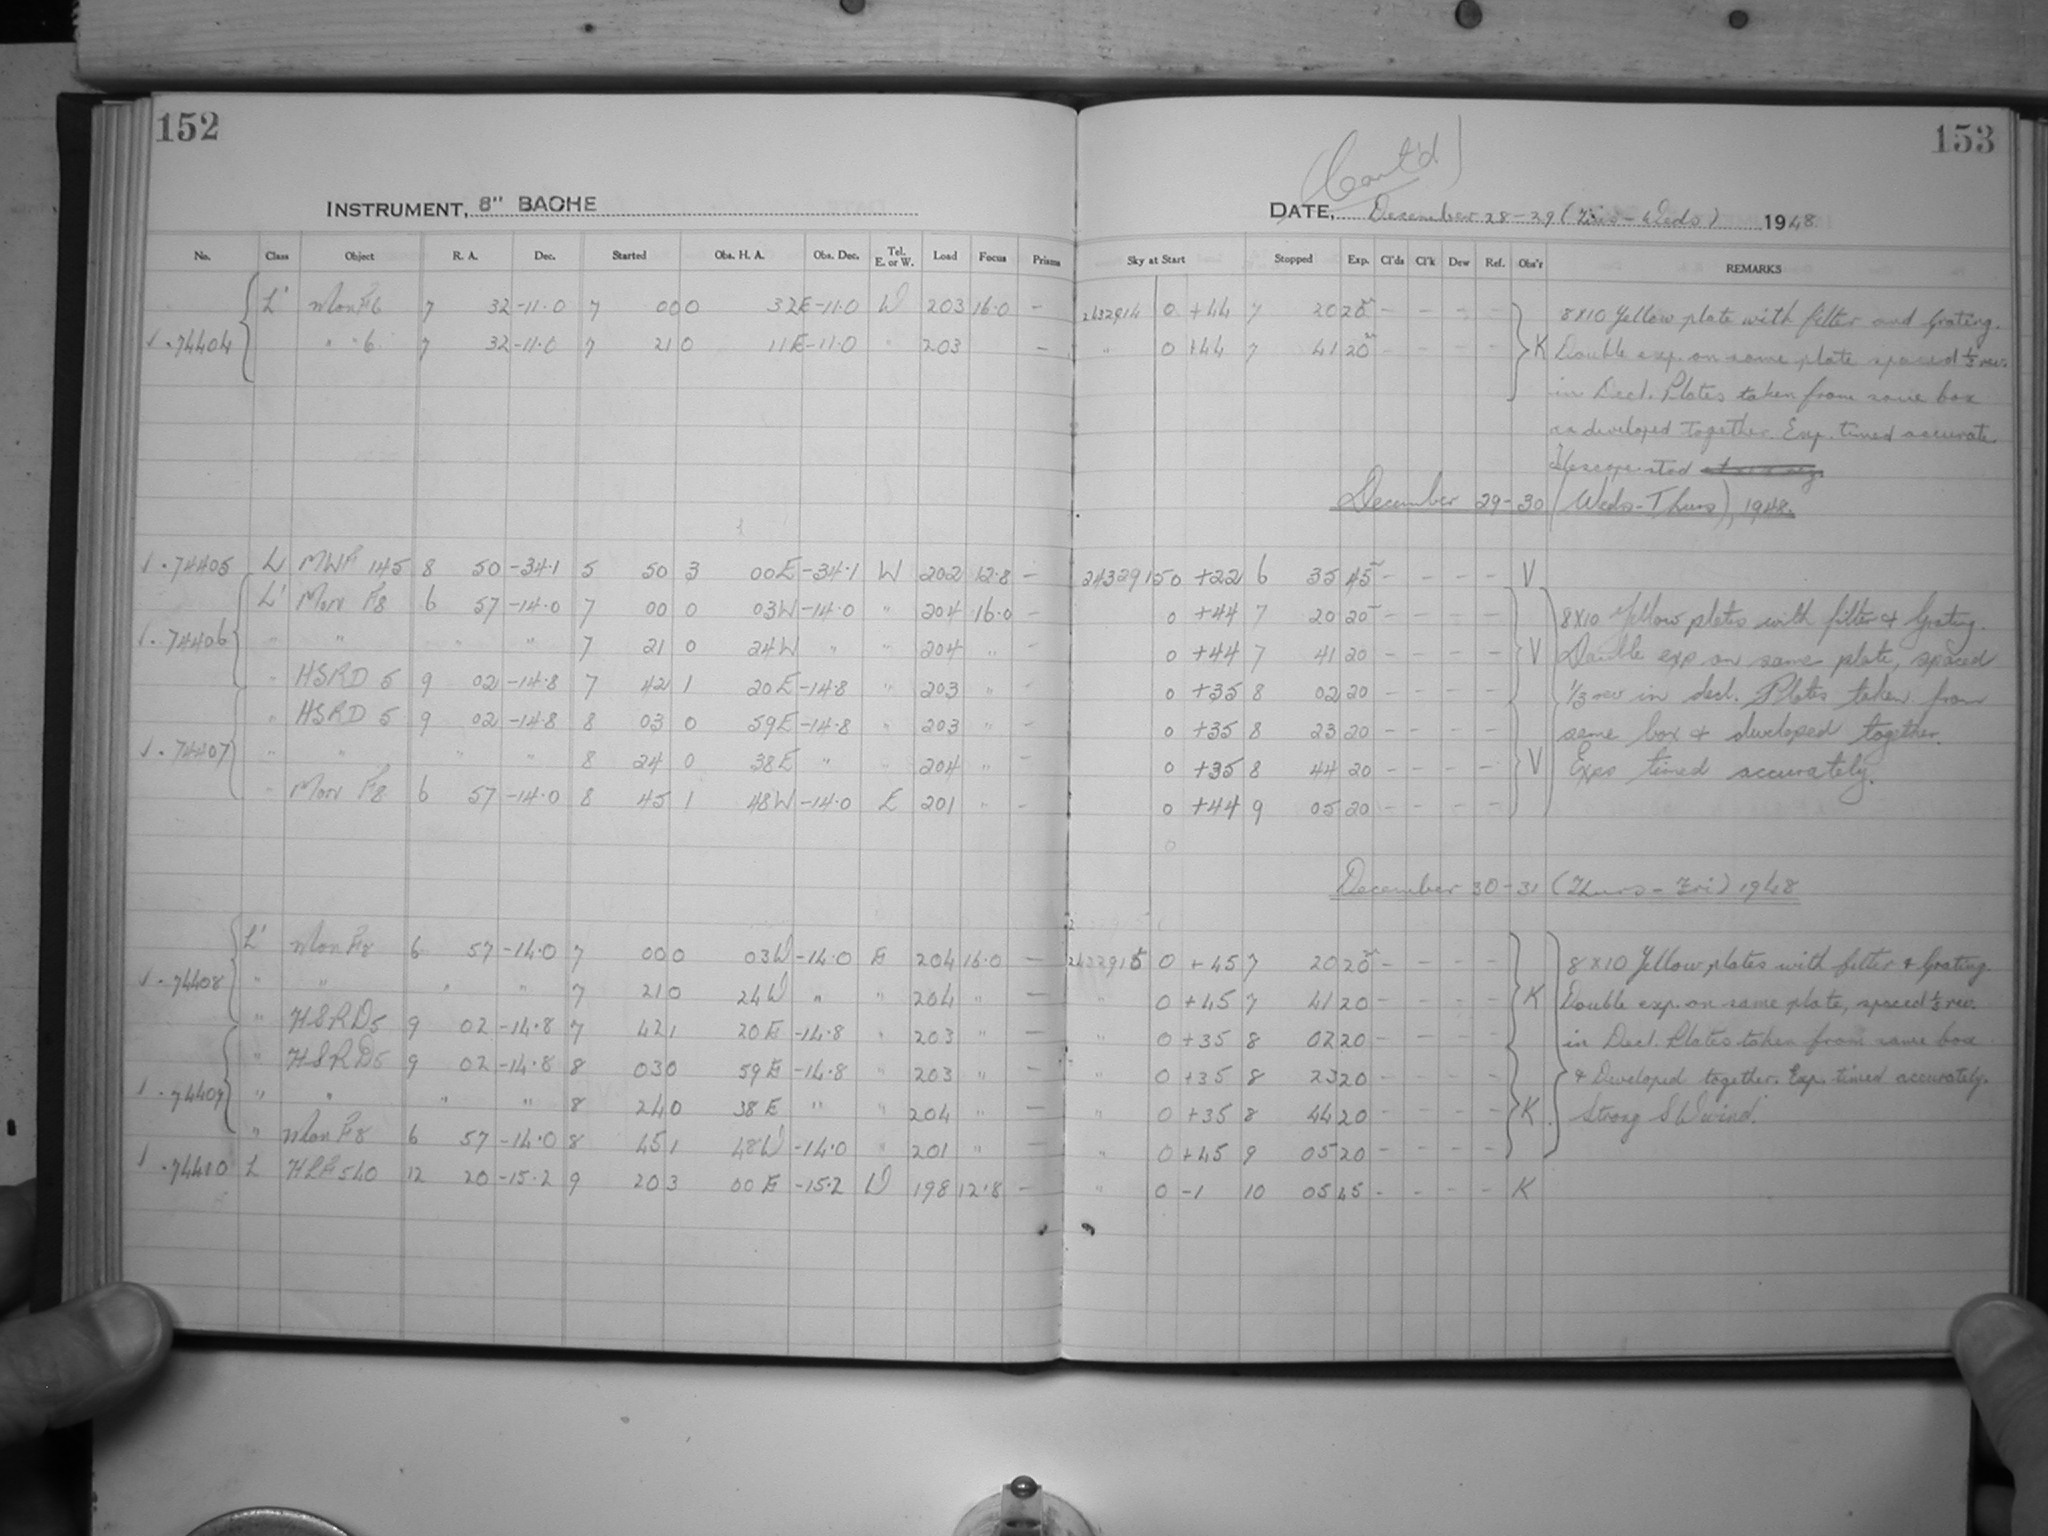 152
153
(Cont'd)
INSTRUMENT, 8" BACHE
DATE, December 28-29 (Tues - Weds) 1948
No. Class Object R. A. Dec. Started Obs. H. A. Obs. Dec. Tel. E. or W. Load Focus Prisms Sky at Start Stopped Exp. Cl'ds Cl'k Dew Ref. Obs'r REMARKS
L' Mon F6 7 32 -11.0 7 00 0 32E -11.0 W 203 16.0 — 2432914 0 +44 7 20 20 - - - - 8x10 Yellow plate with filter and Grating.
√ .74404 " " 6 7 32 -11.0 7 21 0 11E -11.0 " 203 — " 0 +44 7 41 20 - - - - K Double exp. on same plate spaced 1/3 rev.
in Decl. Plates taken from same box
developed together. Exp. timed accurate
December 29-30 (Weds-Thurs), 1948.
√ .74405 L MWF 145 8 50 -34.1 5 50 3 00E -34.1 W 202 12.8 — 2432915 0 +22 6 35 45 - - - - V
L' Mon F8 6 57 -14.0 7 00 0 03W -14.0 " 204 16.0 — 0 +44 7 20 20 - - - - 8x10 Yellow plates with filter & Grating.
√ .74406 " " " " 7 21 0 24W " " 204 " - 0 +44 7 41 20 - - - - V Double exp on same plate, spaced
" HSRD 5 9 02 -14.8 7 42 1 20E -14.8 " 203 " - 0 +35 8 02 20 - - - - 1/3 rev in decl. Plates taken from
" HSRD 5 9 02 -14.8 8 03 0 59E -14.8 " 203 " - 0 +35 8 23 20 - - - - same box & developed together.
√ .74407 " " " " 8 24 0 38E " " 204 " - 0 +35 8 44 20 - - - - V Exps timed accurately.
" Mon F8 6 57 -14.0 8 45 1 48W -14.0 E 201 " - 0 +44 9 05 20 - - - -
0
December 30-31 (Thurs - Fri) 1948
L' Mon F8 6 57 -14.0 7 00 0 03W -14.0 E 204 16.0 — 2432915 0 +45 7 20 20 - - - - 8x10 Yellow plates with filter & Grating.
√ .74408 " " " " 7 21 0 24W " " 204 " — " 0 +45 7 41 20 - - - - K Double exp. on same plate, spaced 1/3 rev.
" HSRD5 9 02 -14.8 7 42 1 20E -14.8 " 203 " — " 0 +35 8 02 20 - - - - in Decl. Plates taken from same box
" HSRD5 9 02 -14.8 8 03 0 59E -14.8 " 203 " — " 0 +35 8 23 20 - - - - & Developed together. Exp. timed accurately.
√ .74409 " " " " 8 24 0 38E " " 204 " — " 0 +35 8 44 20 - - - - K Strong SW wind.
" Mon F8 6 57 -14.0 8 45 1 48W -14.0 " 201 " — " 0 +45 9 05 20 - - - -
√ .74410 L HLF 540 12 20 -15.2 9 20 3 00E -15.2 W 198 12.8 — " 0 -1 10 05 45 - - - - K